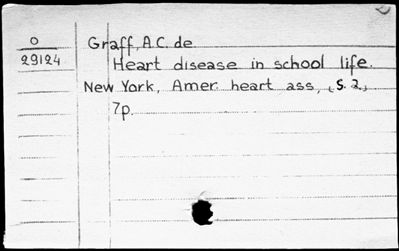 O
29124
Graff, A.C. de
Heart disease in school life.
New York, Amer. heart ass, [s.a.]
7p.